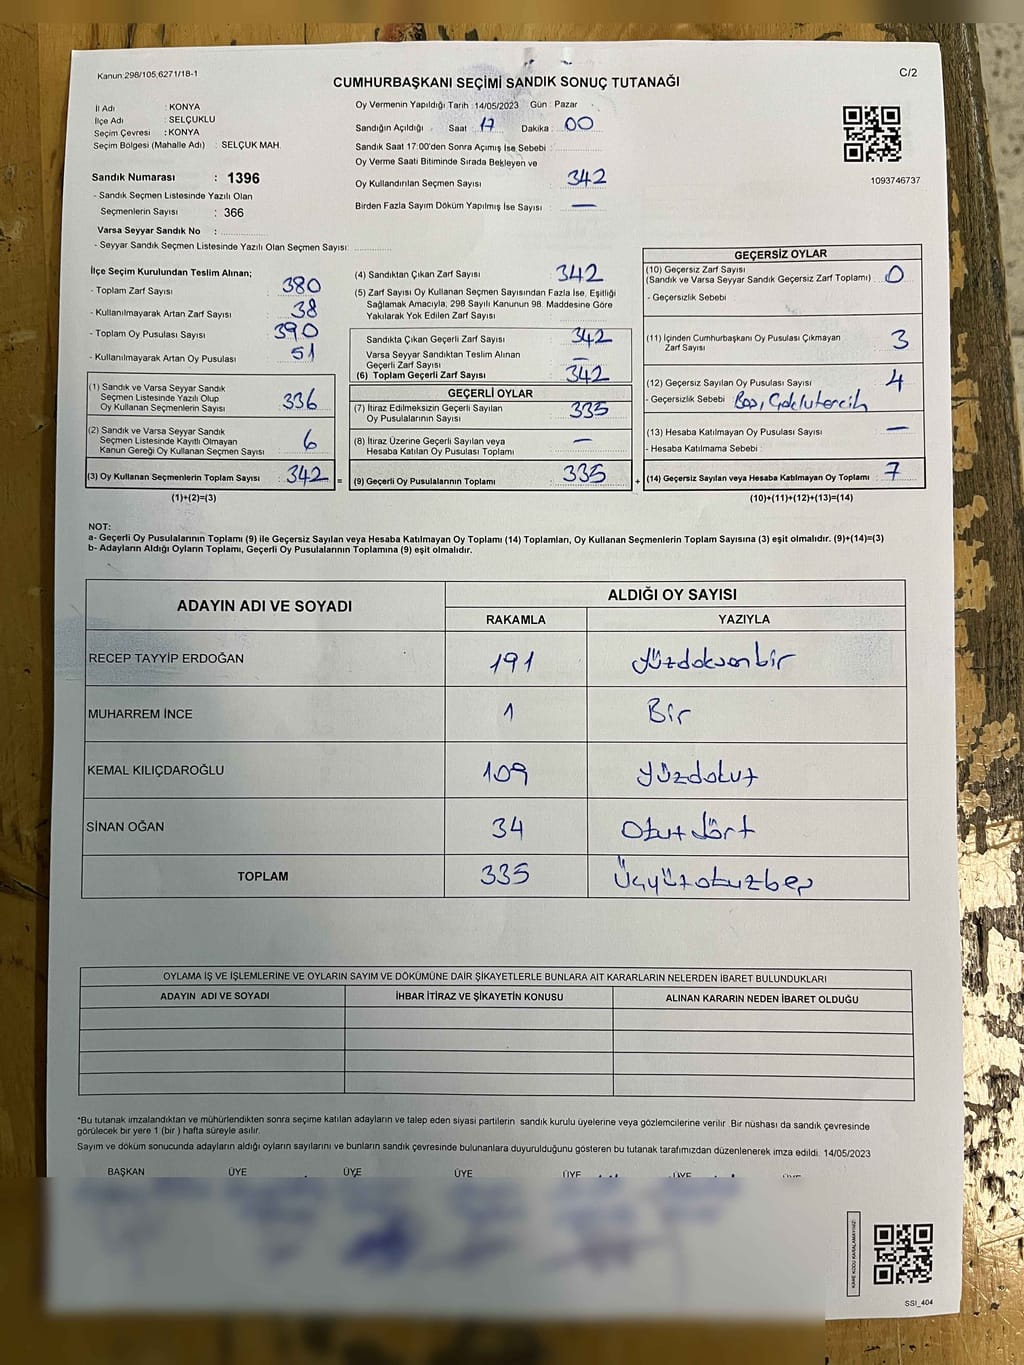 Kanun:298/105,6271/18-1
C/2
CUMHURBAŞKANI SEÇİMİ SANDIK SONUÇ TUTANAĞI
İl Adı : KONYA
İlçe Adı : SELÇUKLU
Seçim Çevresi : KONYA
Seçim Bölgesi (Mahalle Adı) : SELÇUK MAH.
Sandık Numarası : 1396
- Sandık Seçmen Listesinde Yazılı Olan
Seçmenlerin Sayısı : 366
Varsa Seyyar Sandık No :
- Seyyar Sandık Seçmen Listesinde Yazılı Olan Seçmen Sayısı:
Oy Vermenin Yapıldığı Tarih :14/05/2023 Gün : Pazar
Sandığın Açıldığı Saat : 17 Dakika : 00
Sandık Saat 17:00'den Sonra Açımış İse Sebebi :
Oy Verme Saati Bitiminde Sırada Bekleyen ve
Oy Kullandırılan Seçmen Sayısı : 342
Birden Fazla Sayım Döküm Yapılmış İse Sayısı : —
1093746737
İlçe Seçim Kurulundan Teslim Alınan;
- Toplam Zarf Sayısı : 380
- Kullanılmayarak Artan Zarf Sayısı : 38
- Toplam Oy Pusulası Sayısı : 390
- Kullanılmayarak Artan Oy Pusulası : 51
(1) Sandık ve Varsa Seyyar Sandık
Seçmen Listesinde Yazılı Olup
Oy Kullanan Seçmenlerin Sayısı : 336
(2) Sandık ve Varsa Seyyar Sandık
Seçmen Listesinde Kayıtlı Olmayan
Kanun Gereği Oy Kullanan Seçmen Sayısı : 6
(3) Oy Kullanan Seçmenlerin Toplam Sayısı : 342 =
(1)+(2)=(3)
(4) Sandıktan Çıkan Zarf Sayısı : 342
(5) Zarf Sayısı Oy Kullanan Seçmen Sayısından Fazla İse, Eşitliği
Sağlamak Amacıyla; 298 Sayılı Kanunun 98. Maddesine Göre
Yakılarak Yok Edilen Zarf Sayısı :
Sandıkta Çıkan Geçerli Zarf Sayısı : 342
Varsa Seyyar Sandıktan Teslim Alınan
Geçerli Zarf Sayısı : —
(6) Toplam Geçerli Zarf Sayısı : 342
GEÇERLİ OYLAR
(7) İtiraz Edilmeksizin Geçerli Sayılan
Oy Pusulalarının Sayısı : 335
(8) İtiraz Üzerine Geçerli Sayılan veya
Hesaba Katılan Oy Pusulası Toplamı : —
(9) Geçerli Oy Pusulalarının Toplamı : 335 +
GEÇERSİZ OYLAR
(10) Geçersiz Zarf Sayısı
(Sandık ve Varsa Seyyar Sandık Geçersiz Zarf Toplamı) : 0
- Geçersizlik Sebebi
(11) İçinden Cumhurbaşkanı Oy Pusulası Çıkmayan
Zarf Sayısı : 3
(12) Geçersiz Sayılan Oy Pusulası Sayısı : 4
- Geçersizlik Sebebi : Boş, Çoklutercih
(13) Hesaba Katılmayan Oy Pusulası Sayısı : —
- Hesaba Katılmama Sebebi :
(14) Geçersiz Sayılan veya Hesaba Katılmayan Oy Toplamı : 7
(10)+(11)+(12)+(13)=(14)
NOT:
a- Geçerli Oy Pusulalarının Toplamı (9) ile Geçersiz Sayılan veya Hesaba Katılmayan Oy Toplamı (14) Toplamları, Oy Kullanan Seçmenlerin Toplam Sayısına (3) eşit olmalıdır. (9)+(14)=(3)
b- Adayların Aldığı Oyların Toplamı, Geçerli Oy Pusulalarının Toplamına (9) eşit olmalıdır.
ADAYIN ADI VE SOYADI
ALDIĞI OY SAYISI
RAKAMLA YAZIYLA
RECEP TAYYİP ERDOĞAN 191 Yüzdoksanbir
MUHARREM İNCE 1 Bir
KEMAL KILIÇDAROĞLU 109 Yüzdokuz
SİNAN OĞAN 34 Otuzdört
TOPLAM 335 Üçyüzotuzbeş
OYLAMA İŞ VE İŞLEMLERİNE VE OYLARIN SAYIM VE DÖKÜMÜNE DAİR ŞİKAYETLERLE BUNLARA AİT KARARLARIN NELERDEN İBARET BULUNDUKLARI
ADAYIN ADI VE SOYADI İHBAR İTİRAZ VE ŞİKAYETİN KONUSU ALINAN KARARIN NEDEN İBARET OLDUĞU
*Bu tutanak imzalandıktan ve mühürlendikten sonra seçime katılan adayların ve talep eden siyasi partilerin sandık kurulu üyelerine veya gözlemcilerine verilir. Bir nüshası da sandık çevresinde
görülecek bir yere 1 (bir ) hafta süreyle asılır.
Sayım ve döküm sonucunda adayların aldığı oyların sayılarını ve bunların sandık çevresinde bulunanlara duyurulduğunu gösteren bu tutanak tarafımızdan düzenlenerek imza edildi. 14/05/2023
BAŞKAN ÜYE ÜYE ÜYE ÜYE ÜYE ÜYE
KARE KODU KARALAMAYINIZ!
SSI_404